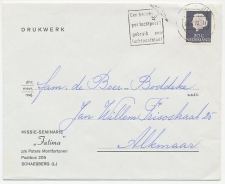 DRUKWERK
per luchtpost
gebruik een
NEDERLAND
fam. de Boer-Boddeke
Jan Willem Frisostraat 25
Alkmaar
MISSIE-SEMINARIE
"Fatima"
p/a Paters Montfortanen
Postbus 205
SCHAESBERG (L.)